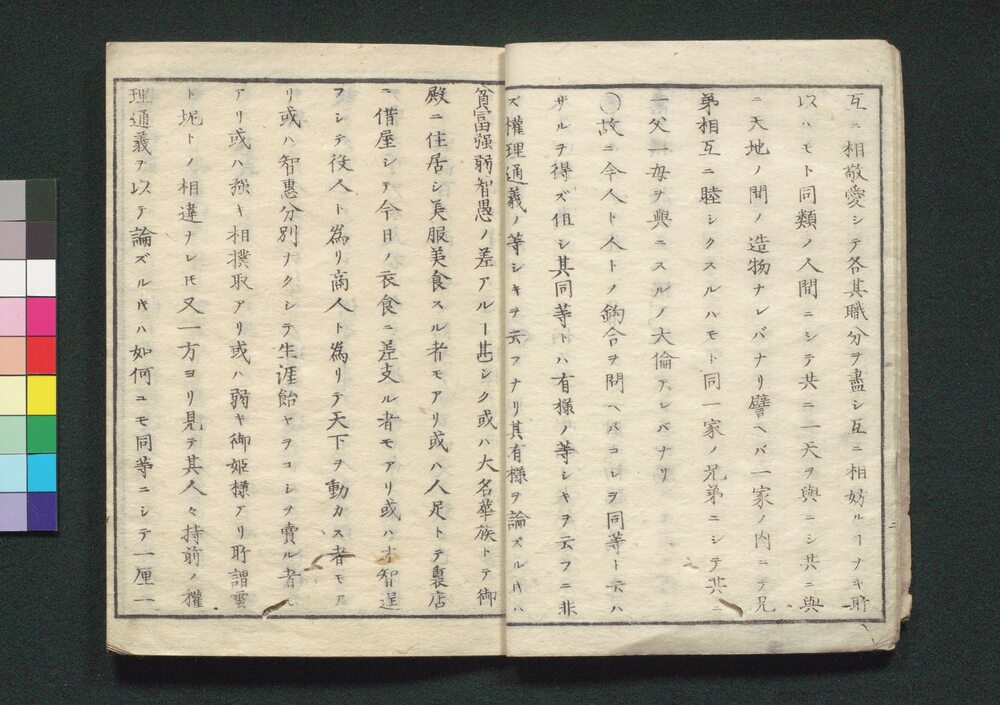 互ニ相敬愛シテ各其職分ヲ盡シ互ニ相妨ルヿナキ所
以ハモト同類ノ人間ニシテ共ニ一天ヲ與ニシ共ニ與
ニ天地ノ間ノ造物ナレバナリ譬ヘバ一家ノ内ニテ兄
弟相互ニ睦シクスルハモト同一家ノ兄弟ニシテ共ニ
一父一母ヲ與ニスルノ大倫アレバナリ
○故ニ今人ト人トノ鈞合ヲ問ヘバコレヲ同等ト云ハ
ザルヲ得ズ伹シ其同等トハ有様ノ等シキヲ云フニ非
ズ權理通義ノ等シキヲ云フナリ其有様ヲ論ズルキハ
貧富强弱智愚ノ差アルヿ甚シク或ハ大名華族トテ御
殿ニ住居シ美服美食スル者モアリ或ハ人足トテ裏店
ニ借屋シテ今日ノ衣食ニ差支ル者モアリ或ハ才智逞
フシテ役人ト為リ商人ト為リテ天下ヲ動カス者モア
リ或ハ智惠分別ナクシテ生涯飴ヤヲコシヲ賣ル者モ
アリ或ハ强キ相撲取アリ或ハ弱キ御姫様アリ所謂雲
ト坭トノ相違ナレ𪜈又一方ヨリ見テ其人々持前ノ權
理通義ヲ以テ論ズルキハ如何ニモ同等ニシテ一厘一